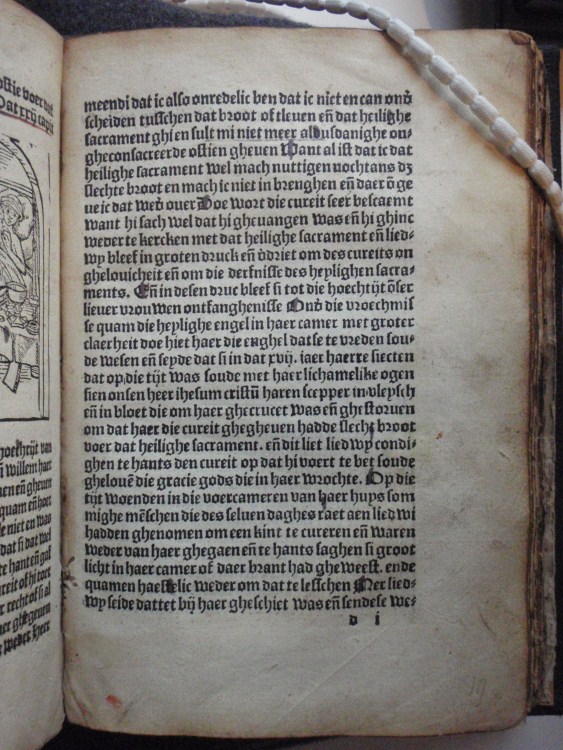 ostie voer dat
Dat xxij capit
meendi dat ic also onredelic ben dat ic niet en can onð
scheiden tusschen dat broot of tleuen eñ dat heilighe
sacrament ghi en sult mi niet meer alsusdanighe on⸗
gheconsacreerde ostien gheuen Want al ist dat ic dat
heilighe sacrament wel mach nuttigen nochtans dʒ
slechte broot en mach ic niet in brenghen eñ daer ō ge
ue ic dat weð ouer Doe wort die cureit seer bescaemt
want hi sach wel dat hi gheuangen was eñ hi ghinc
weder te kercken met dat heilighe sacrament eñ lied⸗
wy bleef in groten druck eñ ðdriet om des cureits on
ghelouicheit eñ om die derfnisse des heylighen sacra⸗
ments. Eñ in desen druc bleef si tot die hoechtijt ōser
lieuer vrouwen ontfanghenisse Onð die vroechmis
se quam die heylighe engel in haer camer met groter
claerheit doe hiet haer die enghel datse te vreden sou⸗
de wesen eñ seyde dat si in dat xvij. iaer haerre siecten
dat op die tijt was soude met haer lichamelike ogen
sien onsen heer ihesum cristū haren scepper in vleysch
eñ in bloet die om haer ghecrucet was eñ ghestoruen
om dat haer die cureit ghegheuen hadde slecht broot
voer dat heilighe sacrament. eñ dit liet lied wy condi⸗
ghen te hants den cureit op dat hi voert te bet soude
ghelouē die gracie gods die in haer wrochte. Op die
tijt woenden in die voercameren van haer huys som
mighe mēschen die des seluen daghes raet aen lied wi
hadden ghenomen om een kint te cureren eñ waren
weder van haer ghegaen eñ te hants saghen si groot
licht in haer camer of daer brant had gheweest. ende
quamen haestelic weder om dat te lesschen Mer lied⸗
wy seide dattet bij haer gheschiet was eñ sendese we⸗
d i
hoekhrijt van
willem haer
eñ gheuen
quam eñ hoert
niet en was
dat si dat wel
te hant eñ gaf
cureit of hi toer
recht of si al
haer ghegeuen
weder heer
19